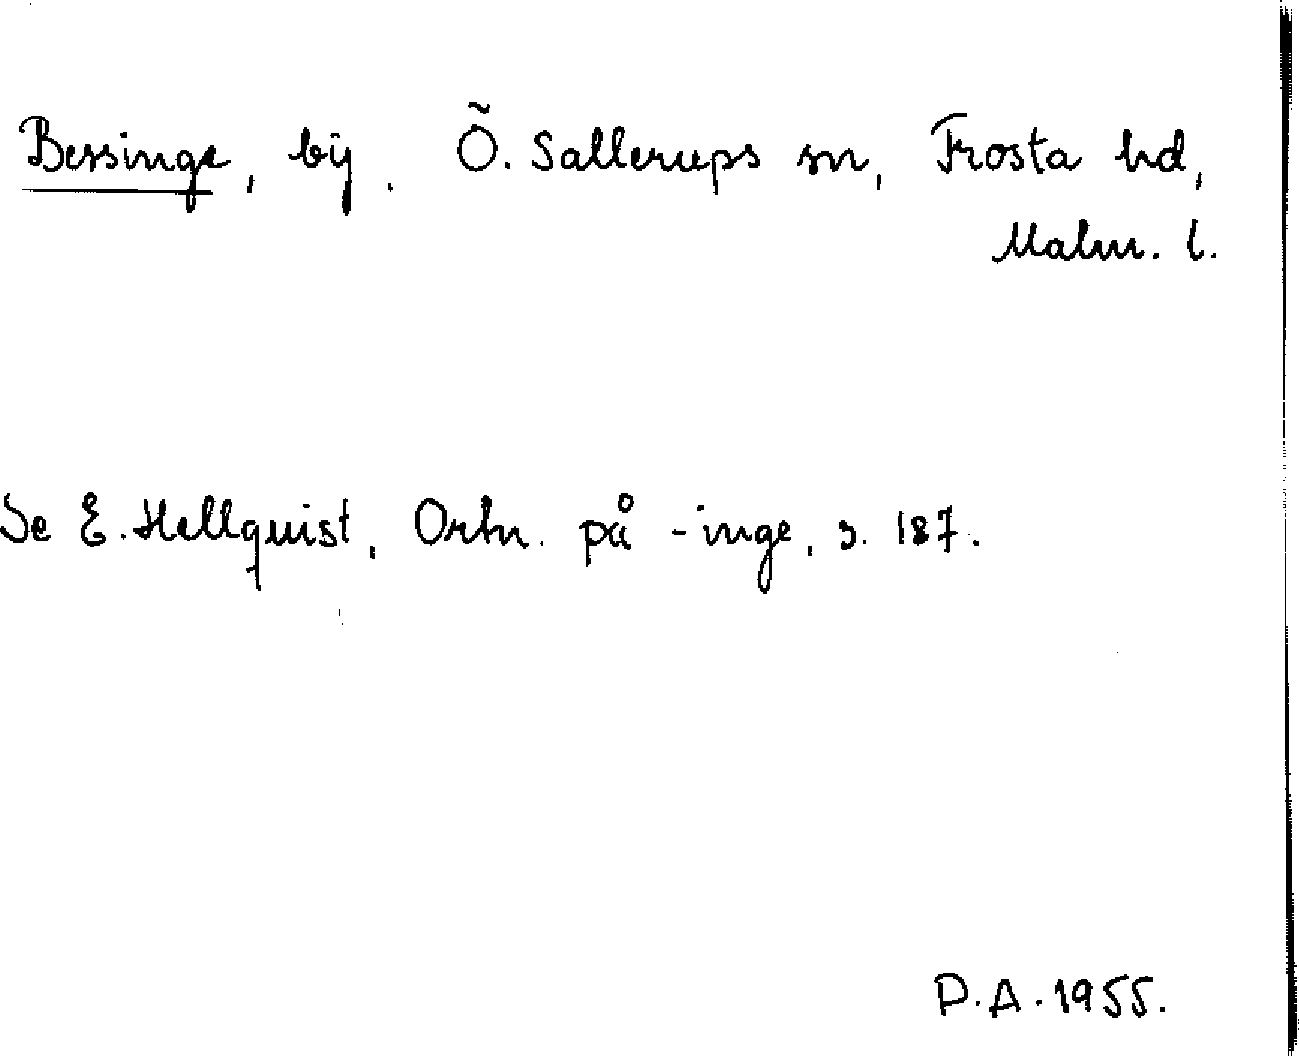 Bessinge, by. Ö. Sallerups sn, Frosta hd,
Malm. l.
Se E. Hellquist, Ortn. på -inge, s. 187.
P.A. 1955.